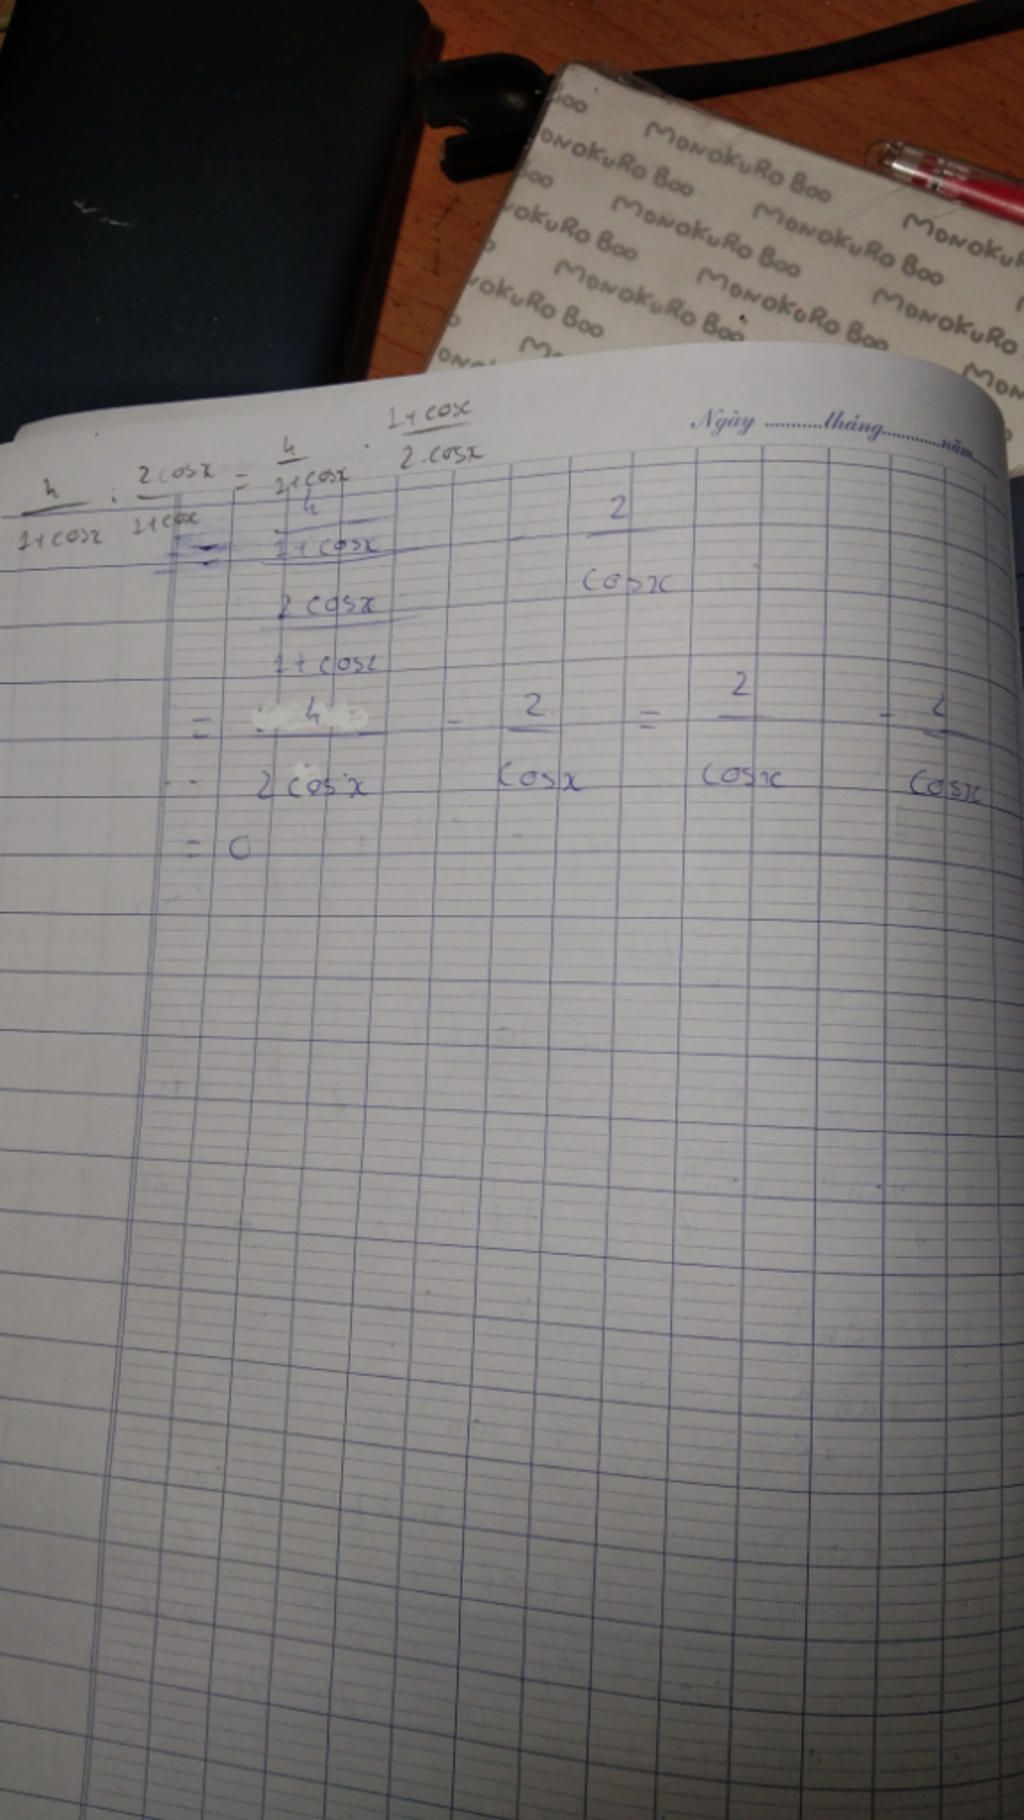 Boo MONOKURO BOO
ONOKURO BOO MONOKURO BOO MONOKUR
BOO MONOKURO BOO MONOKURO BOO
OKURO BOO MONOKURO BOO MONOKURO
OKURO BOO MONOKURO BOO MON
Ngày ............tháng............năm......
4/(1+cosx) : 2cosx/(1+cox) = 4/(1+cosx) . 1+cox/(2.cosx)
= (4/(1+cosx))/(2cosx/(1+cosx)) - 2/cosx
= 4/(2cosx) - 2/cosx = 2/cosx - 2/cosx
= 0